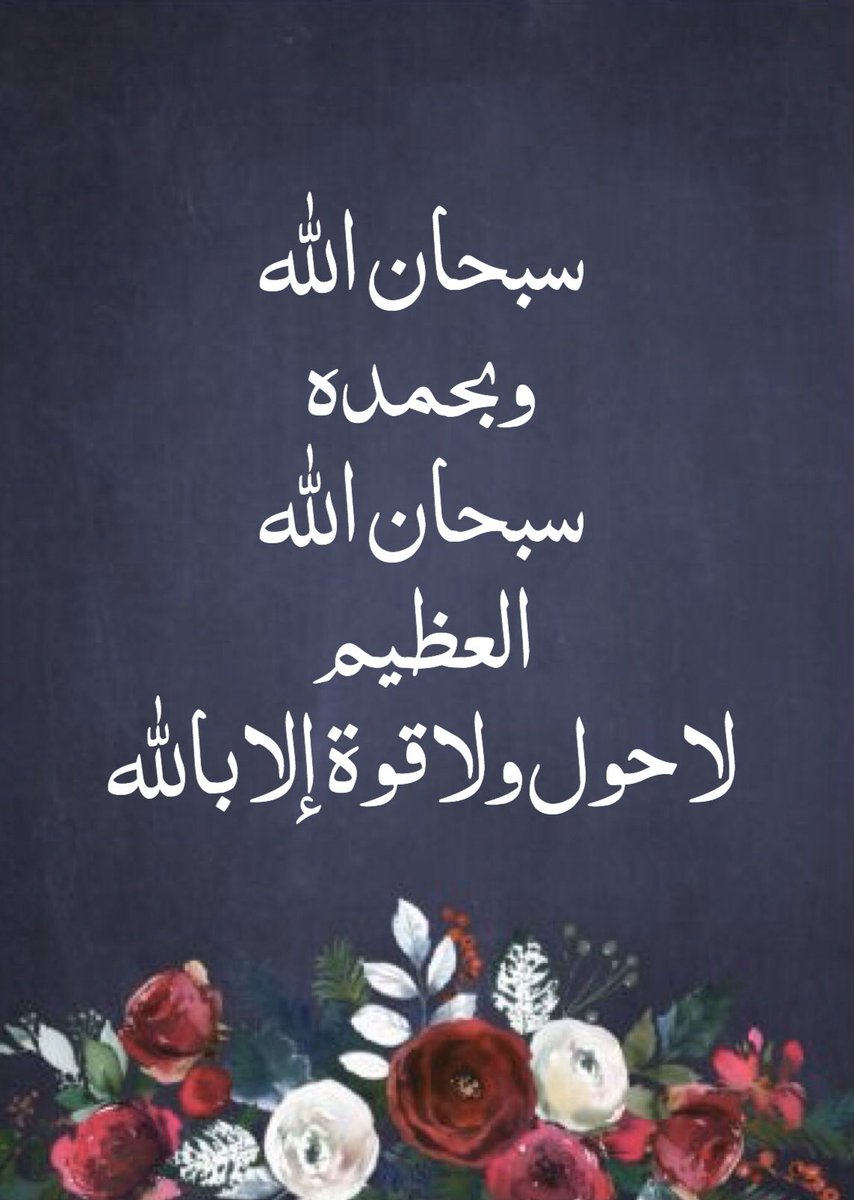 سبحان الله
وبحمده
سبحان الله
العظيم
لا حول ولا قوة إلا بالله